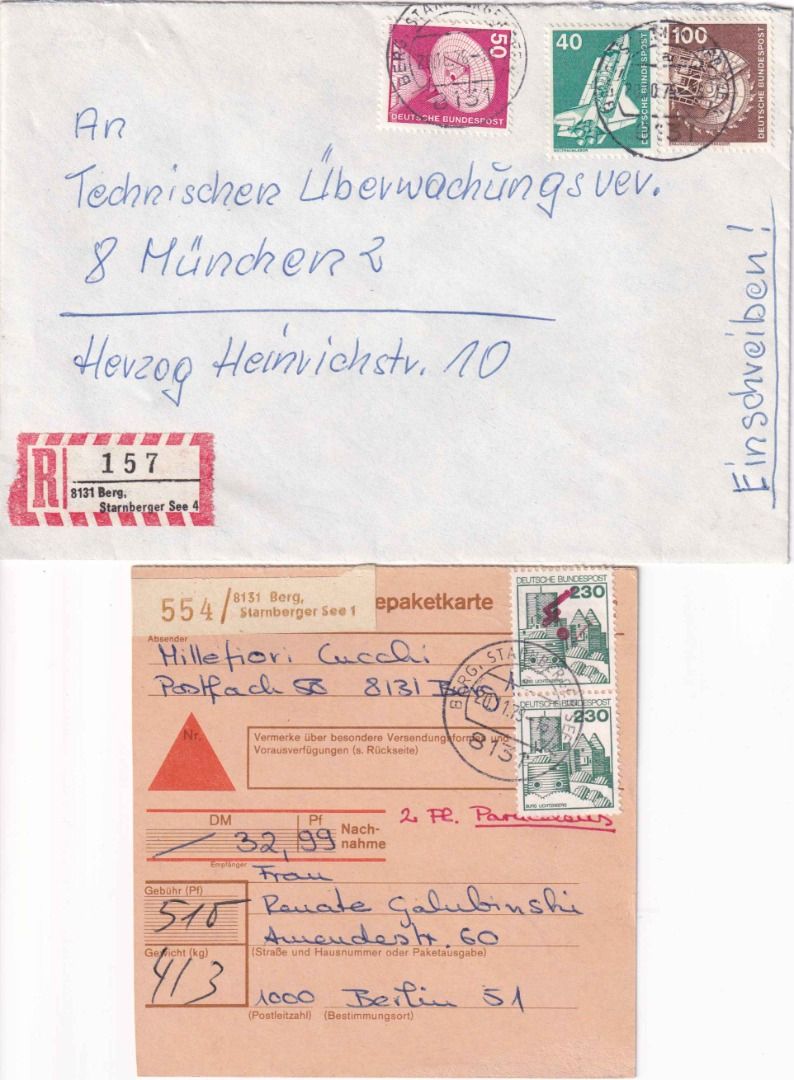 50
DEUTSCHE BUNDESPOST
40
DEUTSCHE BUNDESPOST
100
DEUTSCHE BUNDESPOST
8131
An
Technischen Überwachungsver.
8 München 2
Herzog Heinrichstr. 10
Einschreiben!
R 157
8131 Berg,
Starnberger See 4
554/ 8131 Berg,
Starnberger See 1
epaketkarte
Absender
Millefiori Cucchi
Postfach 8131 Berg 1
Nr.
Vermerke über besondere Versendungsformen und
Vorausverfügungen (s. Rückseite)
DEUTSCHE BUNDESPOST
230
BURG LICHTENBERG
230
BURG LICHTENBERG
BERG, STARNBERGER SEE
8131
DM Pf
32,99 Nach-
nahme
2 Fl.
Empfänger
Frau
Gebühr (Pf)
510
Renate Galubinski
Amendestr. 60
Gewicht (kg)
(Straße und Hausnummer oder Paketausgabe)
413
1000 Berlin 51
(Postleitzahl) (Bestimmungsort)